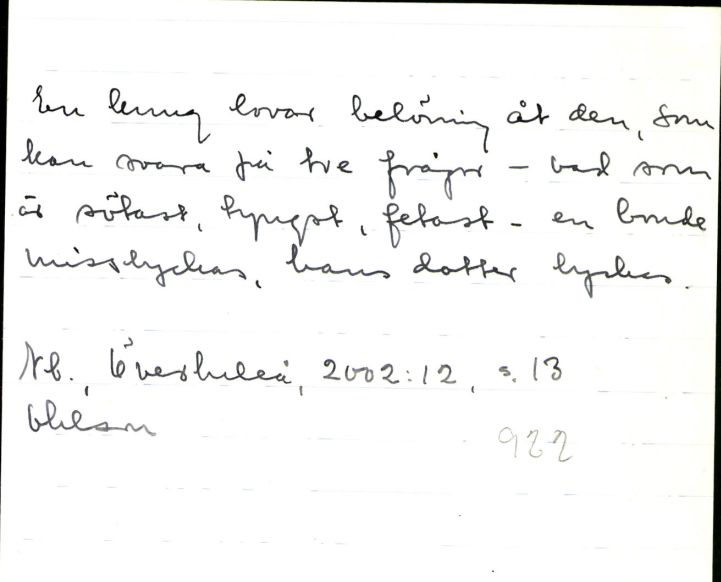 En kung lovar belöning åt den, som
kan svara på tre frågor – vad som
är sötast, tyngst, fetast – en bonde
misslyckas, hans dotter lyckas.
Nb., Överluleå, 2002:12, s. 13
Ohlson
922